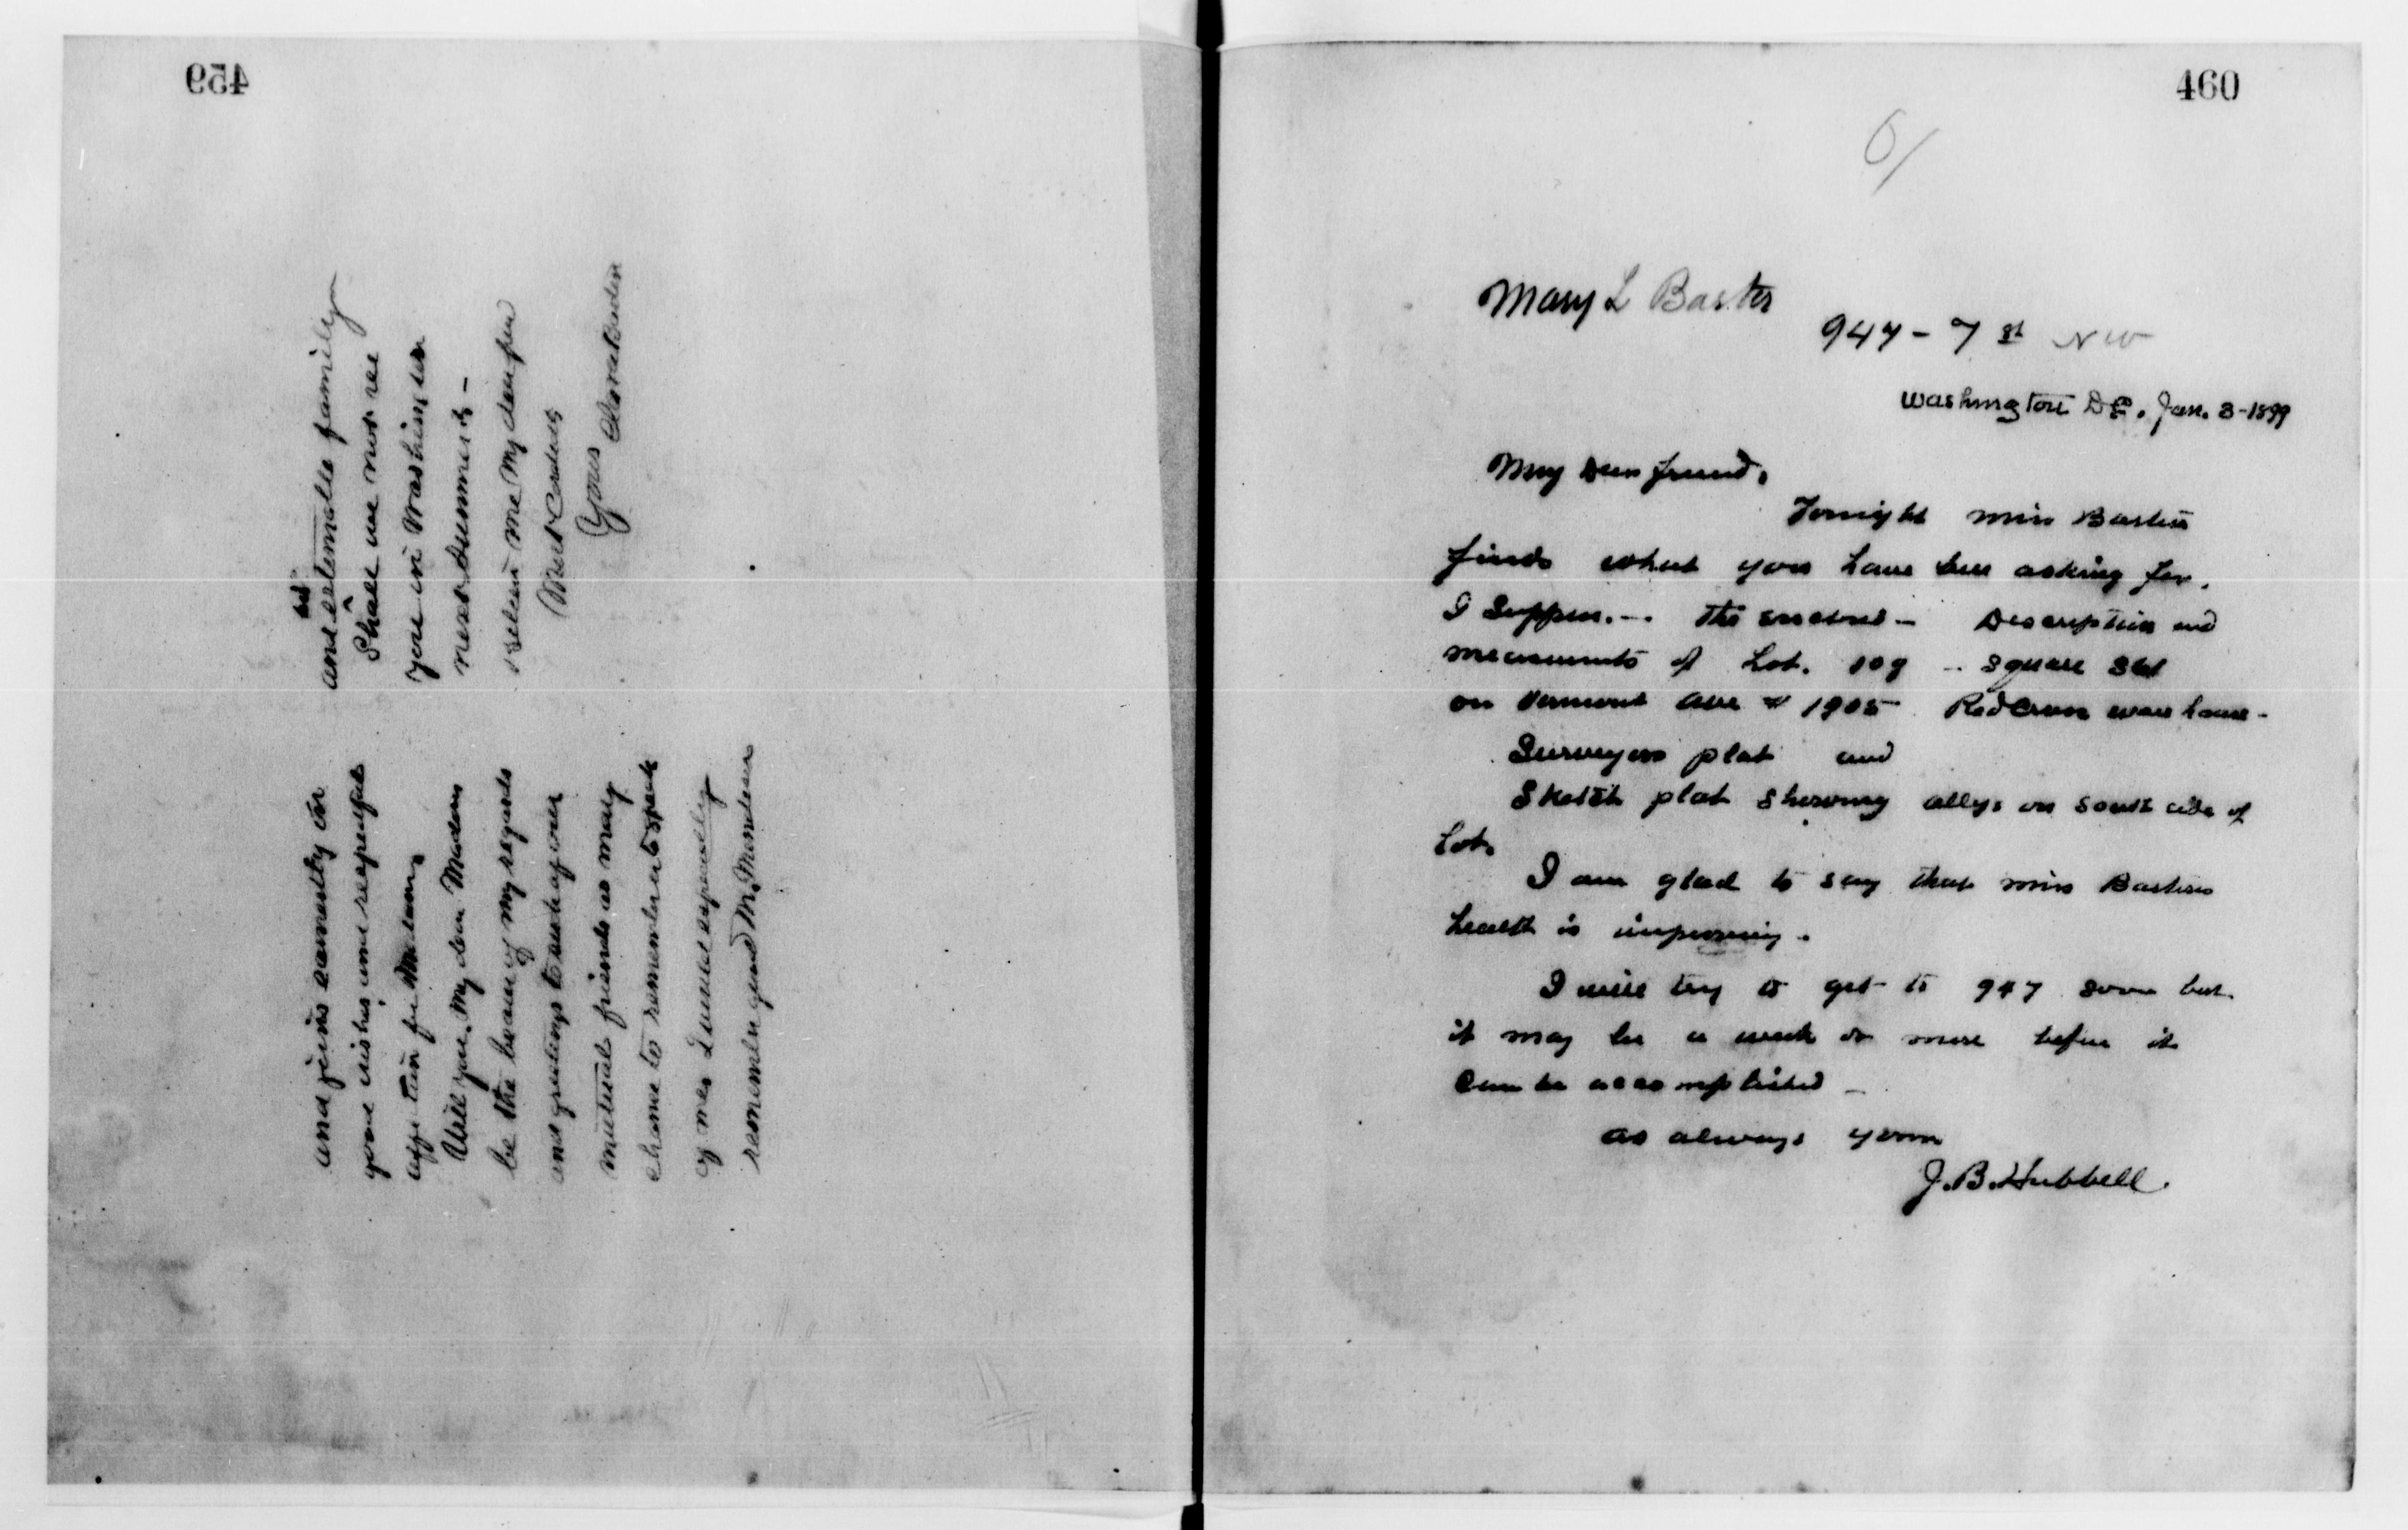 459
and joins earnestly in
good wishes and respectful
affection for Madam,
Will you, My dear Madam
be the bearer of my regards
and greetings to such of our
mutual friends as may
chance to remember to speak
of me, I would especially
remember good Mr. Menden
and estimable family
Shall we not see
you in Washington
next Summer? –
believe me My dear
Most Cordially
Yours Clara Barton
460
6/
Mary L Barker
947 – 7 st NW
Washington DC. Jan. 3 – 1899
My Dear friend,
Tonight Miss Barton
finds what you have been asking for,
I Suppose. – The enclosed – Description and
measurements of Lot. 109 – Square
on Vermont Ave # 1905 Red Cross ware house –
Surveyors plat and
Sketch plat showing alleys on south side of
Lot.
I am glad to say that Miss Bartons
health is improving.
I will try to get to 947 soon but
it may be a week or more before it
can be accomplished –
as always yours
J. B. Hubbell.